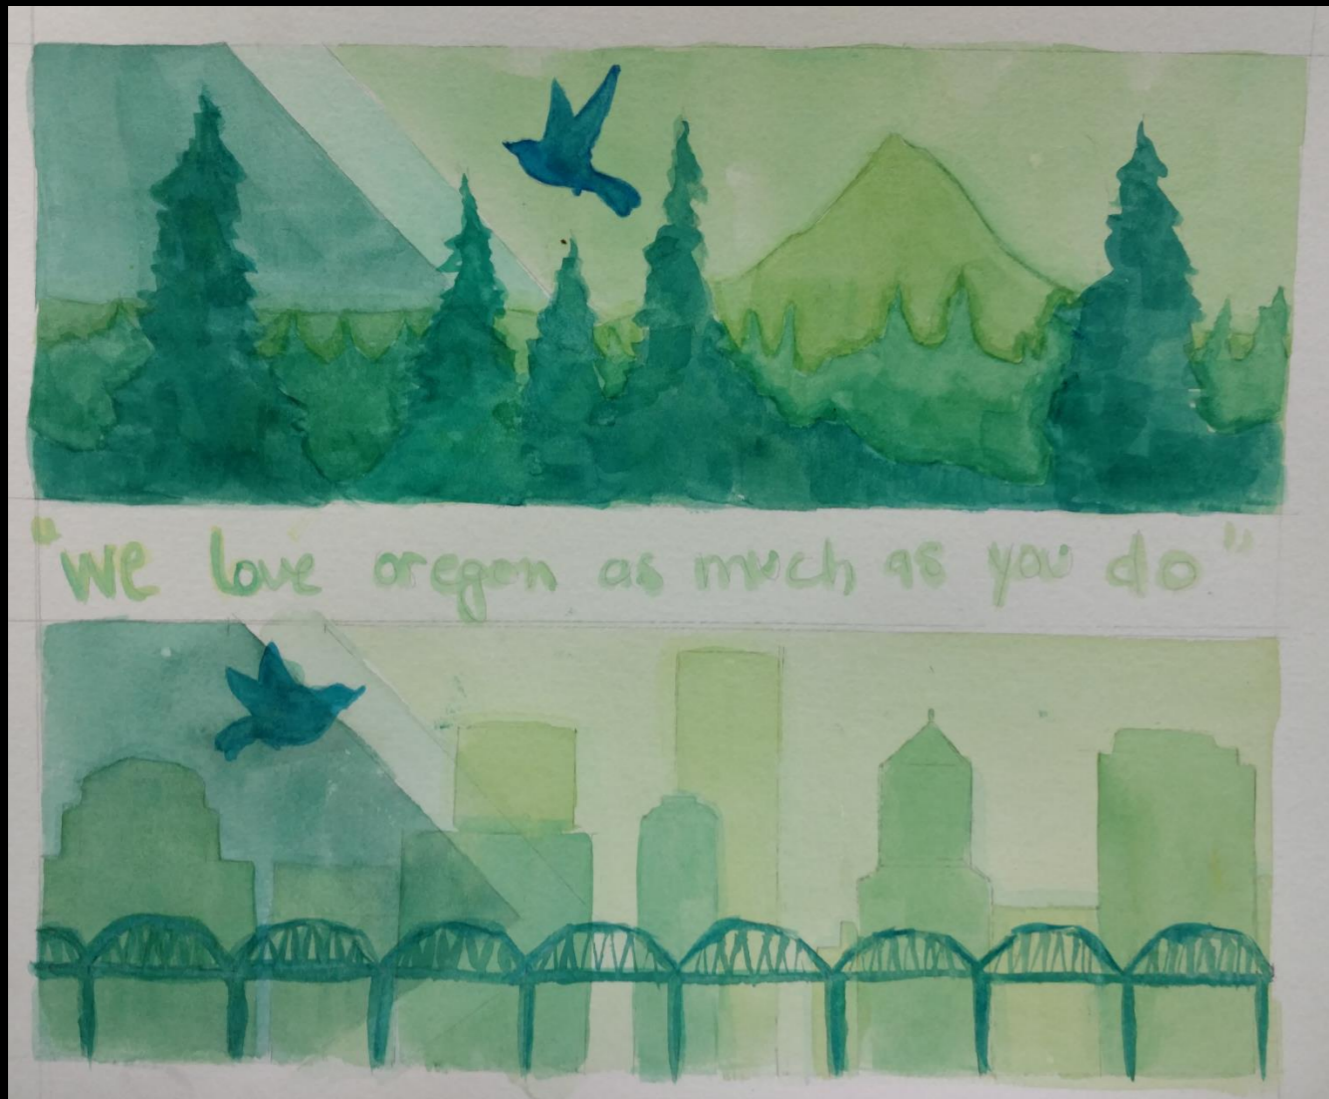 "we love oregon as much as you do"